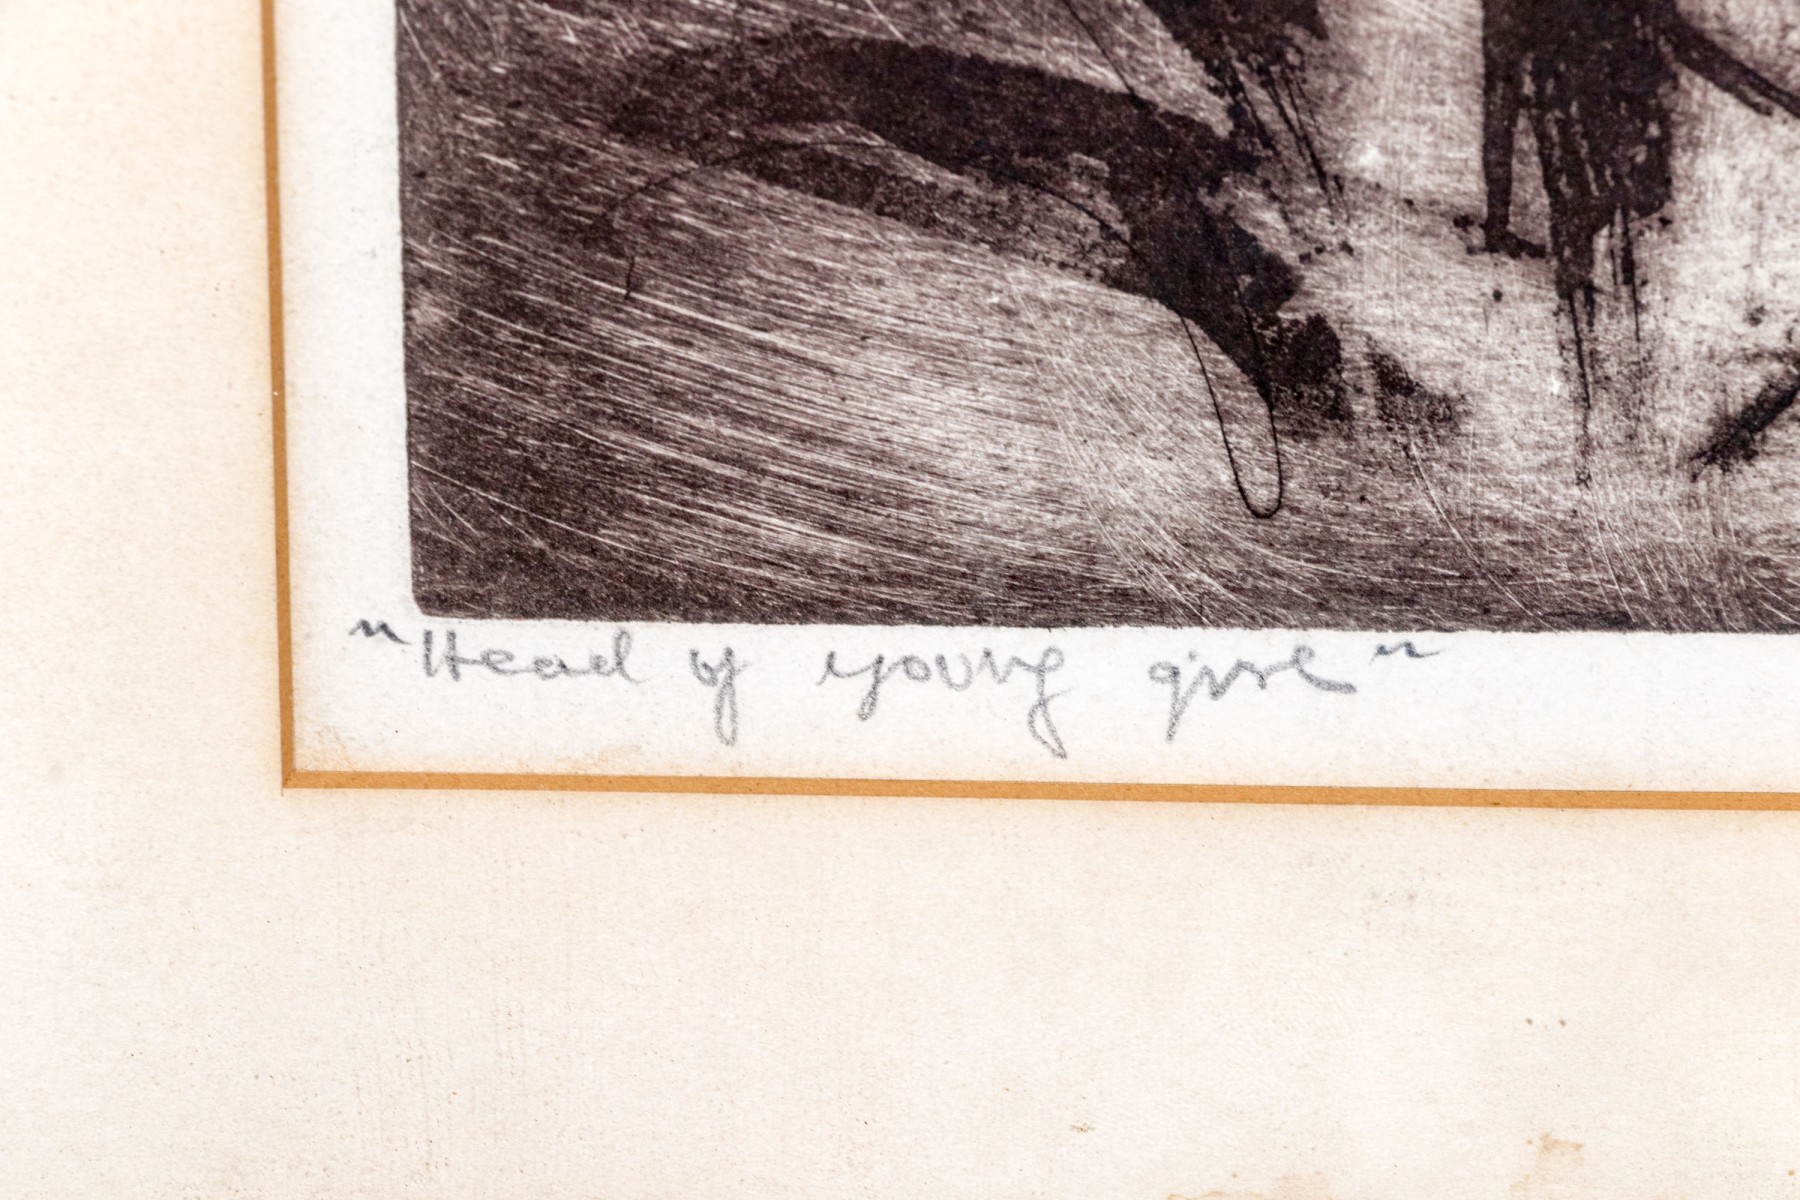 "Head of young girl"